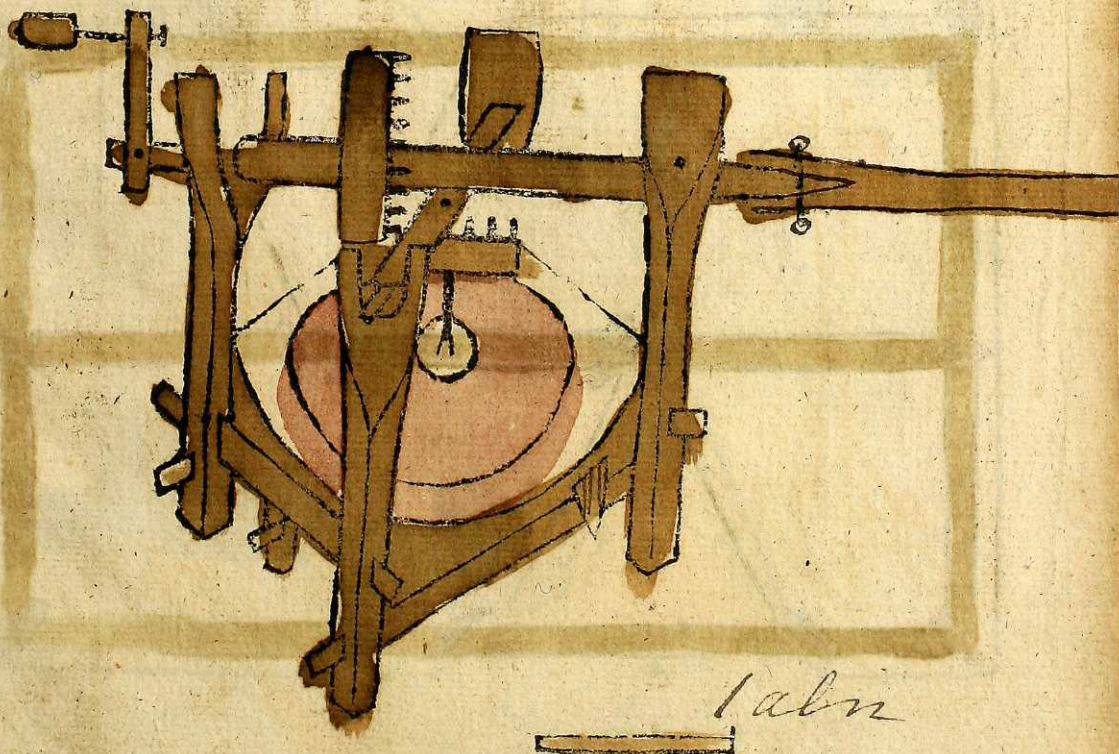 1 aln